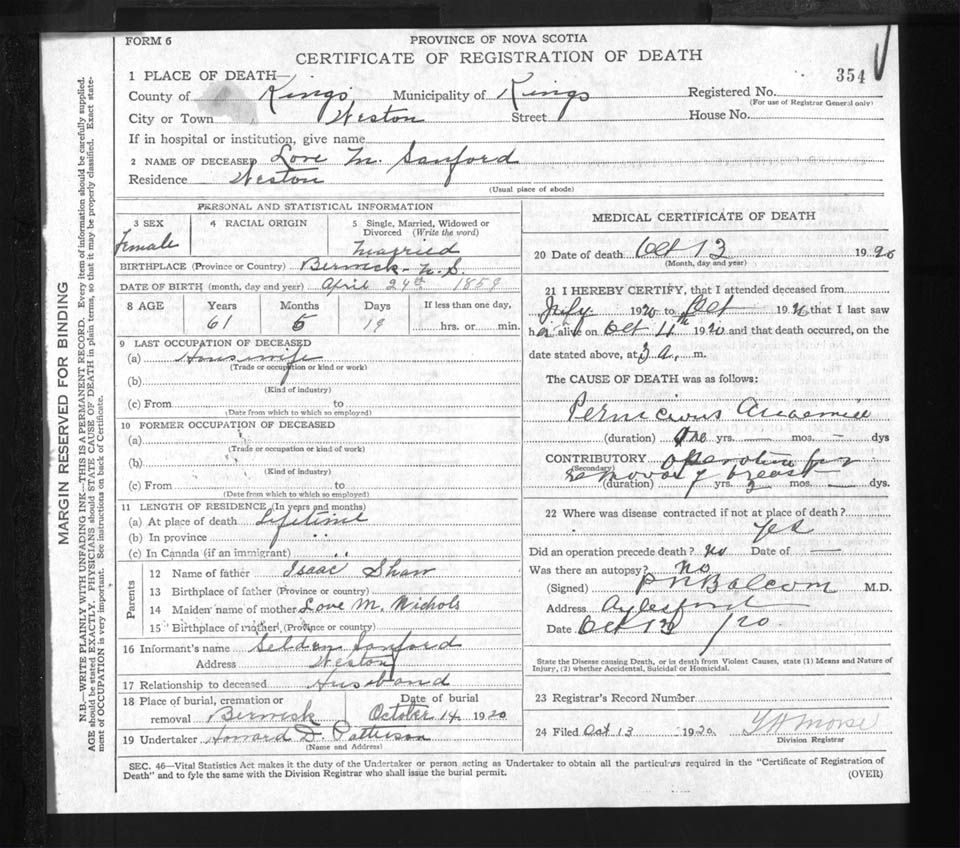 FORM 6
PROVINCE OF NOVA SCOTIA
CERTIFICATE OF REGISTRATION OF DEATH
354
1 PLACE OF DEATH—
County of Kings Municipality of Kings Registered No.
(For use of Registrar General only)
City or Town Weston Street House No.
If in hospital or institution, give name
2 NAME OF DECEASED Love M. Sanford
Residence Weston
(Usual place of abode)
PERSONAL AND STATISTICAL INFORMATION
3 SEX Female
4 RACIAL ORIGIN
5 Single, Married, Widowed or Divorced (Write the word)
Married
BIRTHPLACE (Province or Country) Berwick - N.S.
DATE OF BIRTH (month, day and year) April 24th 1859
8 AGE Years Months Days If less than one day,
61 5 19 hrs. or min.
9 LAST OCCUPATION OF DECEASED
(a) Housewife
(Trade or occupation or kind or work)
(b)
(Kind of industry)
(c) From to
(Date from which to which so employed)
10 FORMER OCCUPATION OF DECEASED
(a)
(Trade or occupation or kind of work)
(b)
(Kind of industry)
(c) From to
(Date from which to which so employed)
11 LENGTH OF RESIDENCE (In years and months)
(a) At place of death Lifetime
(b) In province " "
(c) In Canada (if an immigrant) " "
Parents
12 Name of father Isaac Shaw
13 Birthplace of father (Province or country)
14 Maiden name of mother Love M. Nichols
15 Birthplace of mother, (Province or country)
16 Informant's name Selden Sanford
Address Weston
17 Relationship to deceased Husband
18 Place of burial, cremation or removal Berwick
Date of burial October 14 1920
19 Undertaker Howard D. Patterson
(Name and Address)
MEDICAL CERTIFICATE OF DEATH
20 Date of death Oct 13 1920
(Month, day and year)
21 I HEREBY CERTIFY, that I attended deceased from
July 1920 to Oct 1920 that I last saw
her alive on Oct 11th 1920 and that death occurred, on the
date stated above, at 3 a. m.
The CAUSE OF DEATH was as follows:
Pernicious Anaemia
(duration) One yrs. — mos. — dys
CONTRIBUTORY Operation for
(Secondary) removal of breast
(duration) yrs. 2 mos. — dys.
22 Where was disease contracted if not at place of death?
Yes
Did an operation precede death? No Date of —
Was there an autopsy? No
(Signed) P N Balcom M.D.
Address Aylesford
Date Oct 13 /20
State the Disease causing Death, or is death from Violent Causes, state (1) Means and Nature of
Injury, (2) whether Accidental, Suicidal or Homicidal.
23 Registrar's Record Number
24 Filed Oct 13 1920 Morse
Division Registrar
SEC. 46—Vital Statistics Act makes it the duty of the Undertaker or person acting as Undertaker to obtain all the particulars required in the "Certificate of Registration of
Death" and to fyle the same with the Division Registrar who shall issue the burial permit.
(OVER)
MARGIN RESERVED FOR BINDING
N.B.—WRITE PLAINLY WITH UNFADING INK—THIS IS A PERMANENT RECORD. Every item of information should be carefully supplied.
AGE should be stated EXACTLY. PHYSICIANS should STATE CAUSE OF DEATH in plain terms, so that it may be properly classified. Exact state-
ment of OCCUPATION is very important. See instructions on back of Certificate.